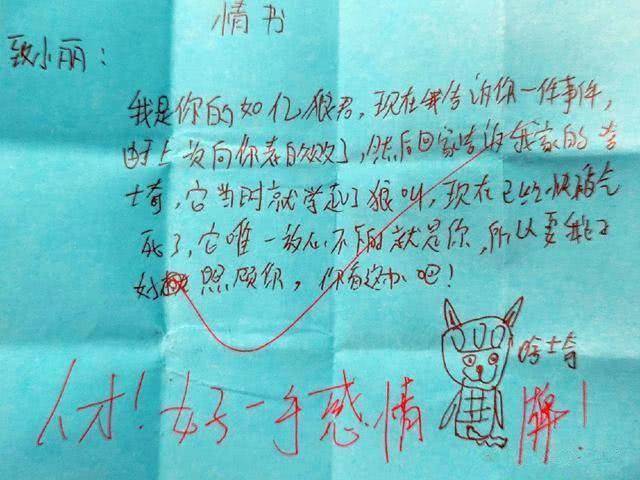 情书
致小丽:
我是你的如亿狼君,现在我告诉你一件事件,
上次向你表白败了,然后回家告诉我家的哈
士奇,它当时就学起了狼叫,现在已经快气
死了,它唯一放心不下的就是你,所以要我
好照顾你,你看这办吧!
哈士奇
人才!好一手感情牌!